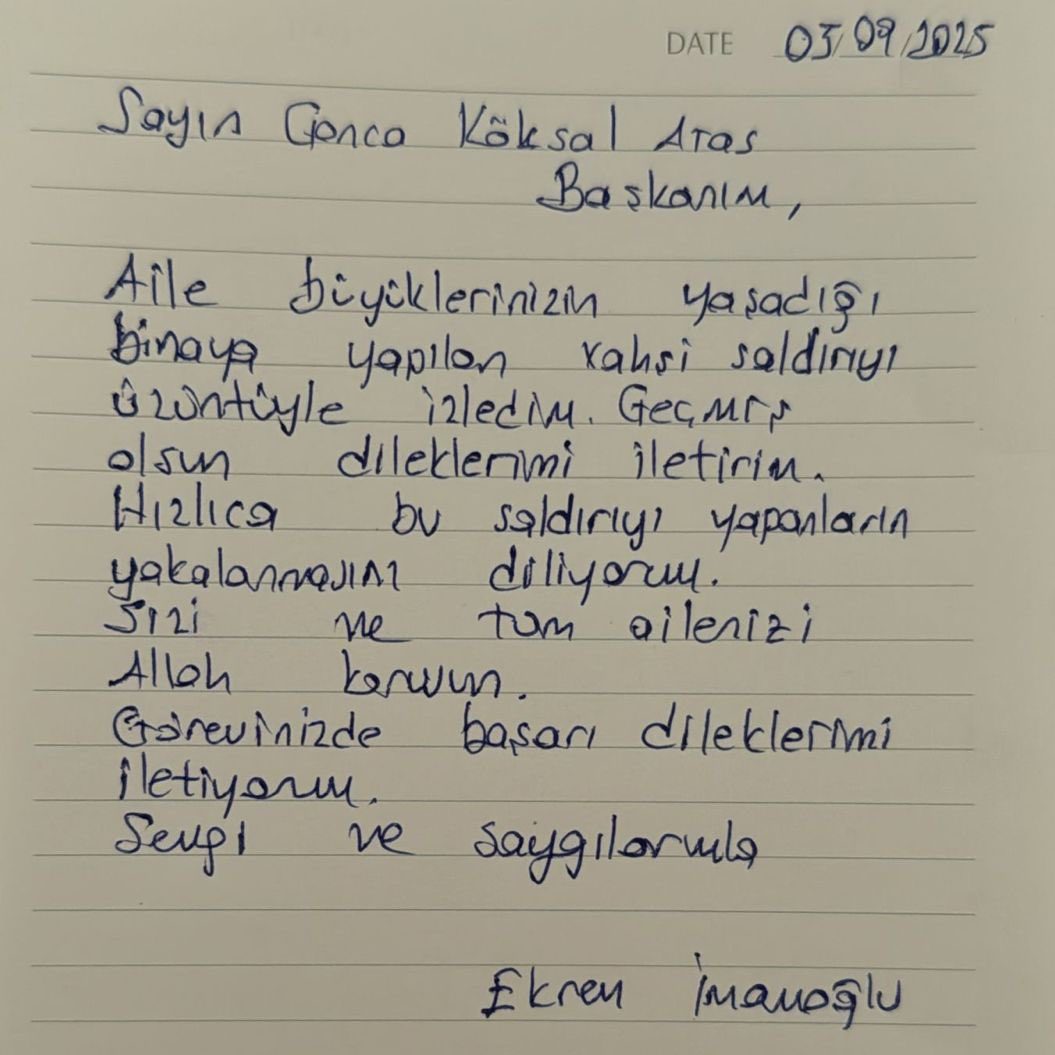 DATE 03/09/2025
Sayın Gonca Köksal Aras
Başkanım,
Aile büyüklerinizin yaşadığı
binaya yapılan vahşi saldırıyı
üzüntüyle izledim. Geçmiş
olsun dileklerimi iletirim.
Hızlıca bu saldırıyı yapanların
yakalanmasını diliyorum.
Sizi ve tüm ailenizi
Allah korusun.
Görevinizde başarı dileklerimi
iletiyorum.
Sevgi ve saygılarımla
Ekrem İmamoğlu